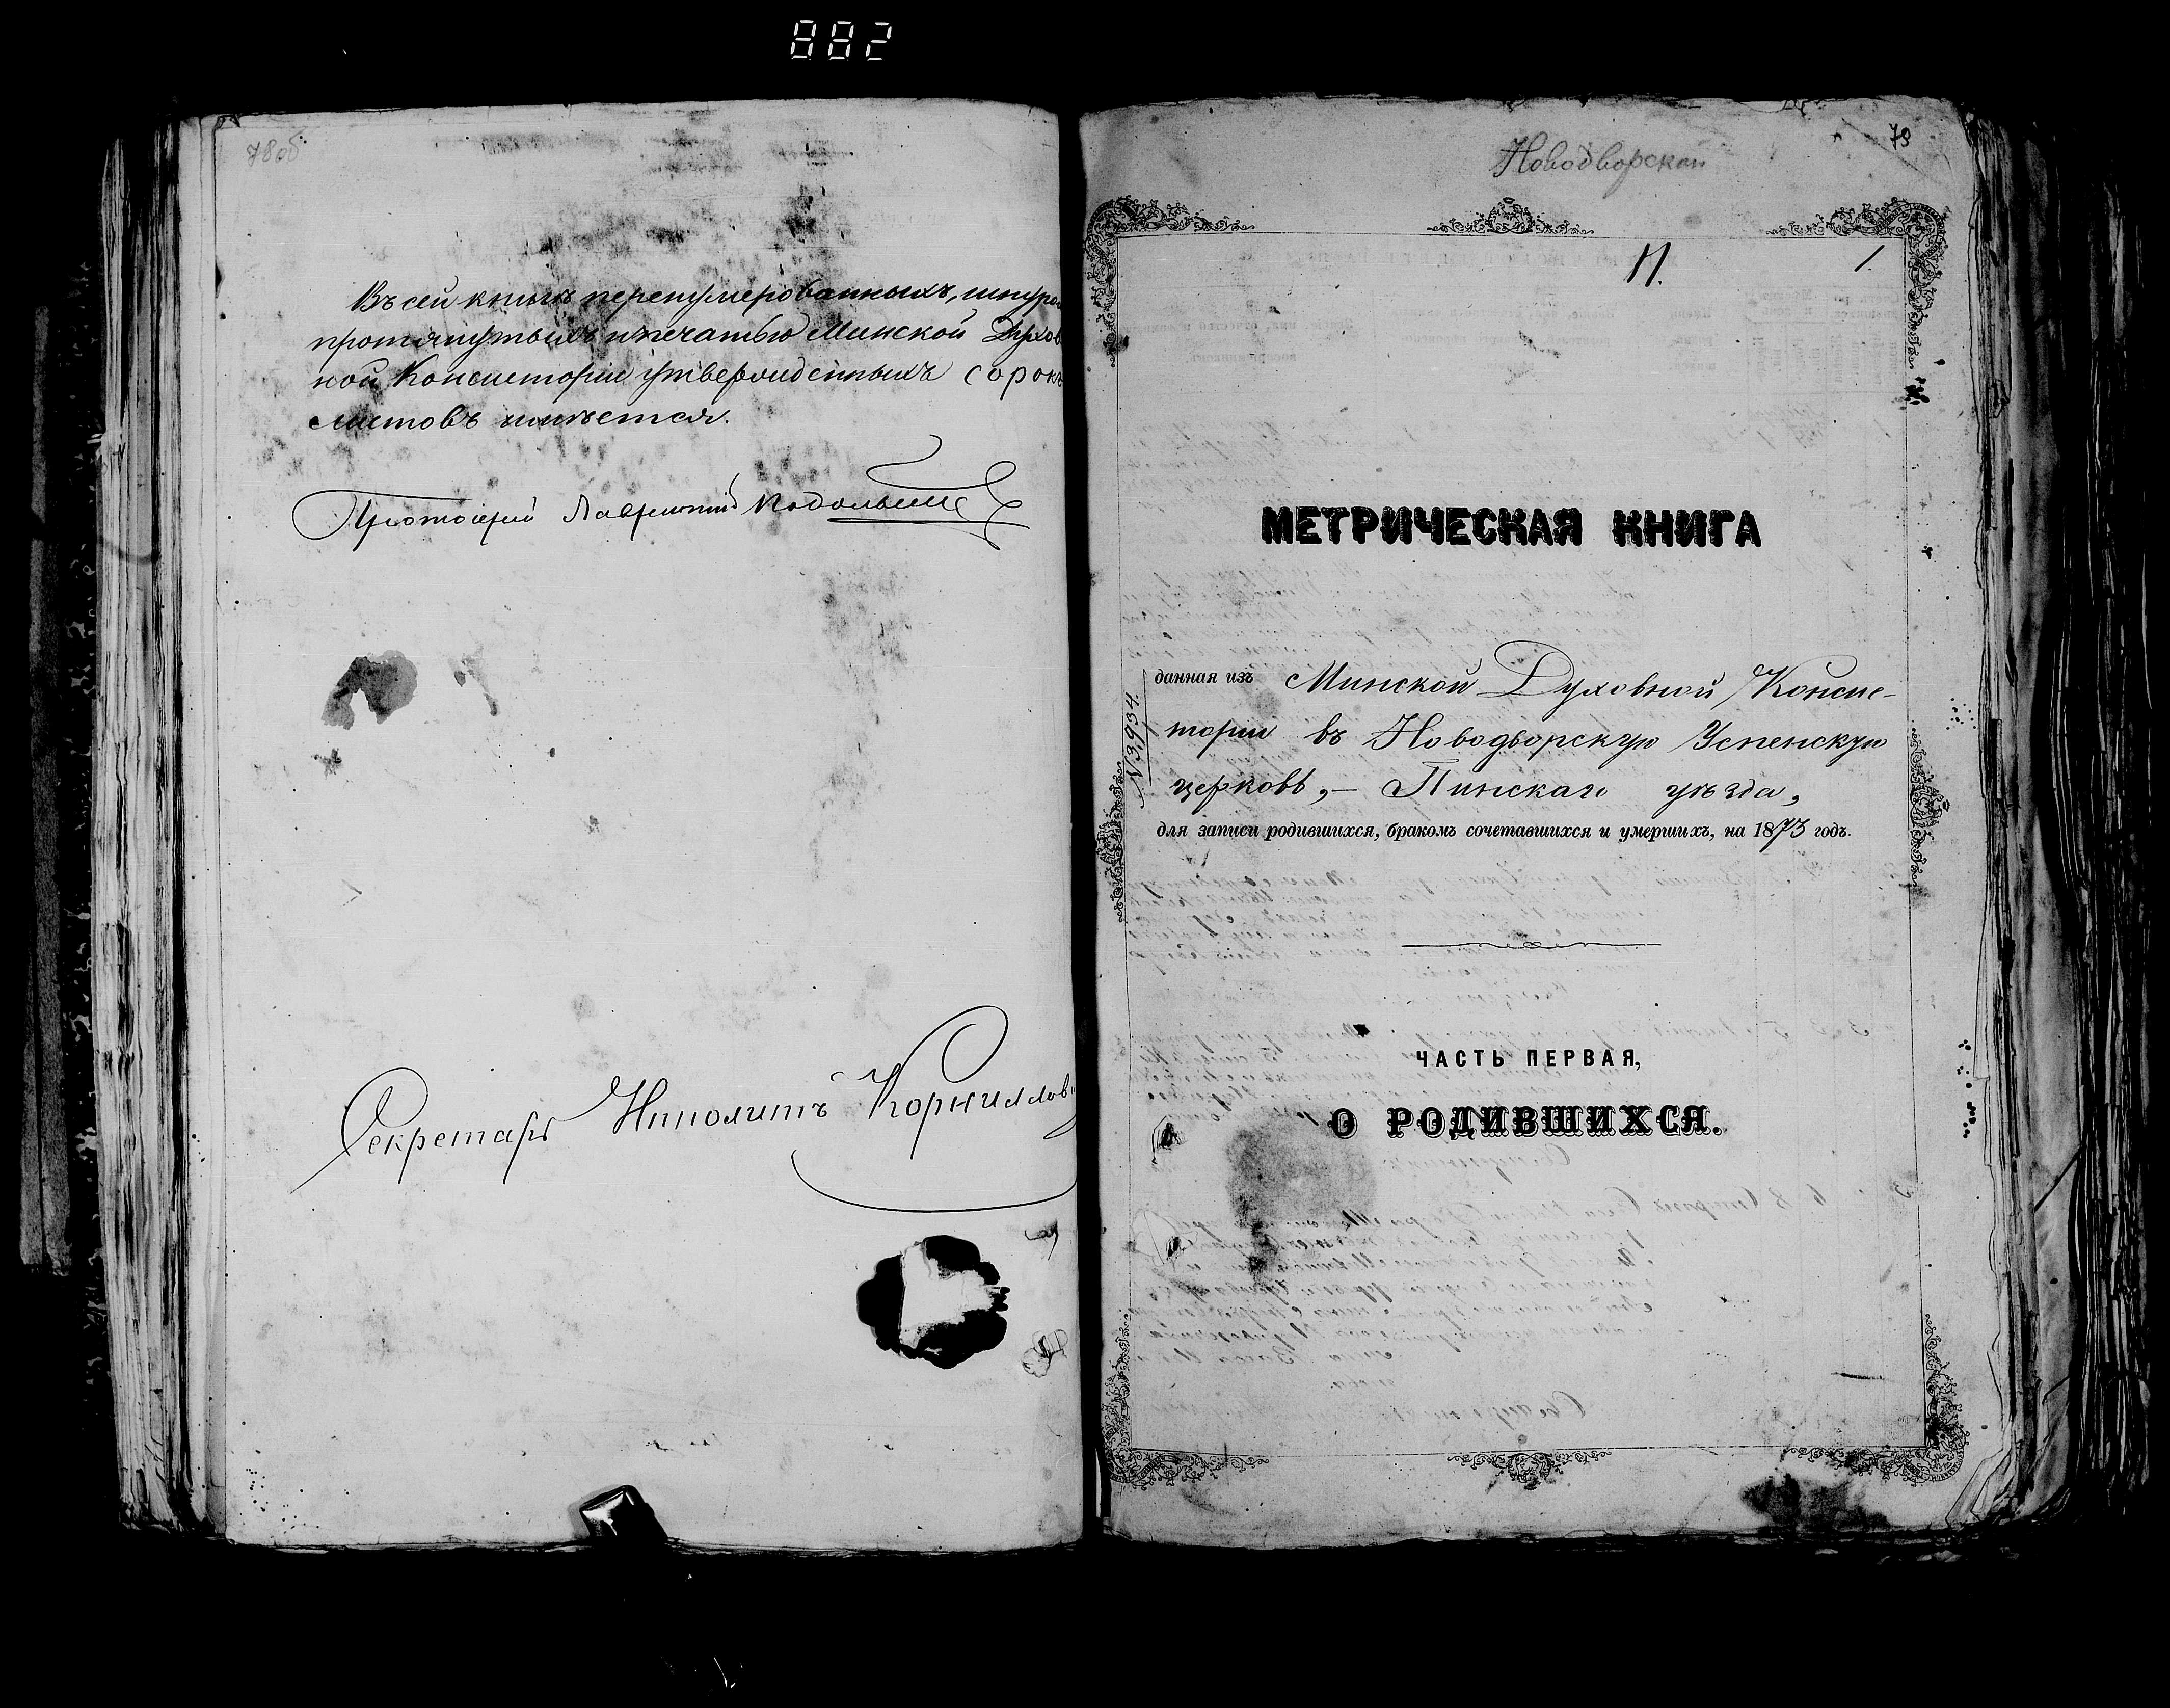 882
78об
Въ сей книгѣ перенумерованныхъ, шнуро
протянутыхъ и печатью Минской Духов
ной Консисторіи утвержденныхъ сорокъ
листовъ имѣется.
Протоіерей Лаврентій
Секретарь Ипполитъ Корниллов
79
Новодворской
1.
МЕТРИЧЕСКАЯ КНИГА
данная изъ Минской Духовной Консис-
торіи въ Новодворскую Успенскую
церковь,- Пинскаго уѣзда,
для записи родившихся, бракомъ сочетавшихся и умершихъ, на 1873 годъ.
№ 3,934.
ЧАСТЬ ПЕРВАЯ,
О РОДИВШИХСЯ.